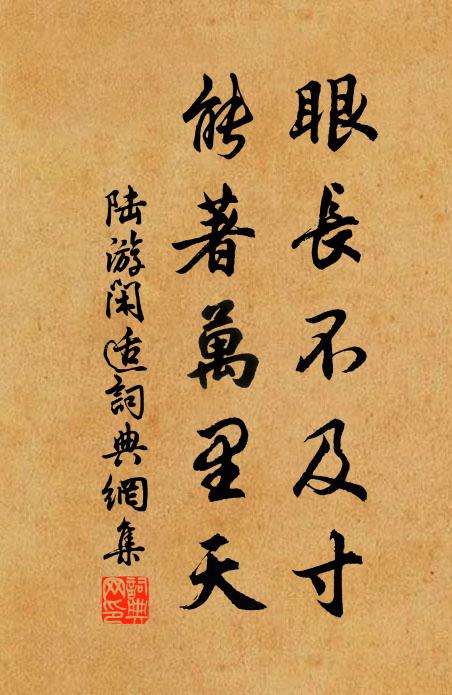 眼長不及寸
能著萬里天
陆游閑适詞典網集
詞典
网印